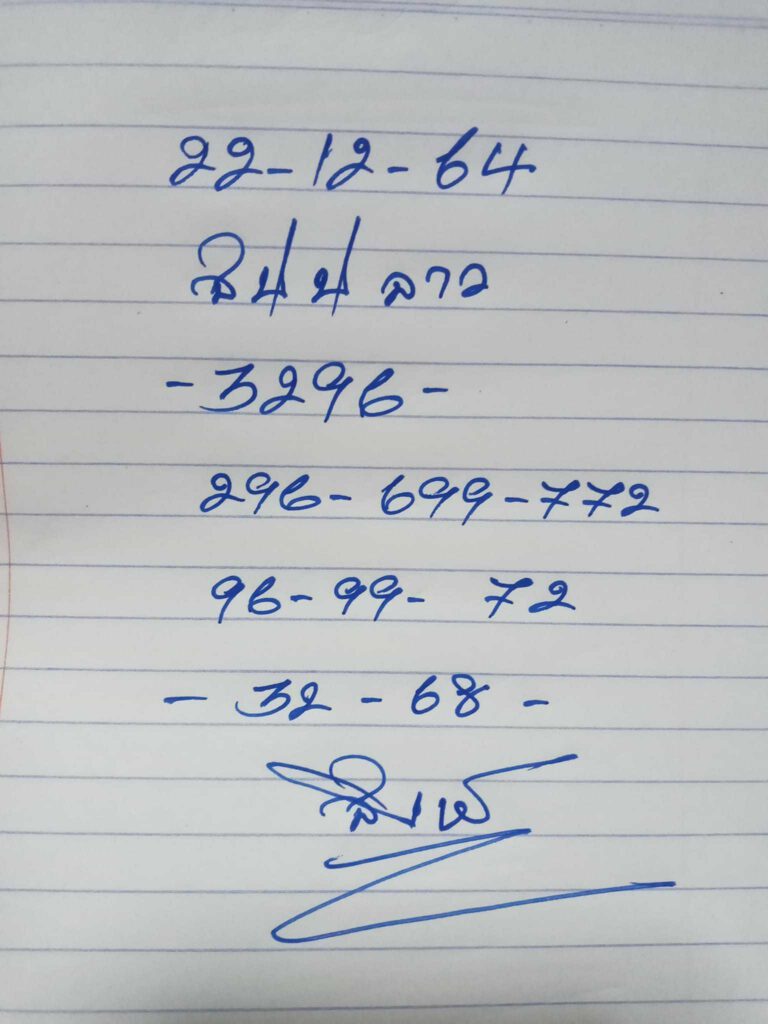 22-12-64
ลาว
-3296-
296-699-772
96-99- 72
- 32 - 68 -